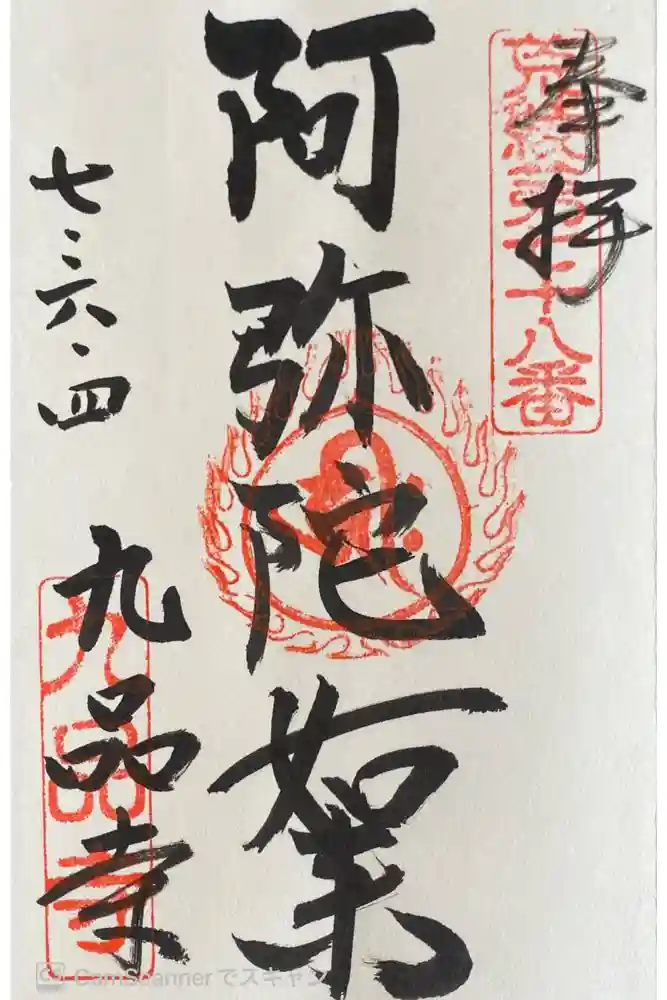 奉拝
十八番
阿弥陀如来
七・六・四
九品寺
九品寺
CamScannerでスキャン